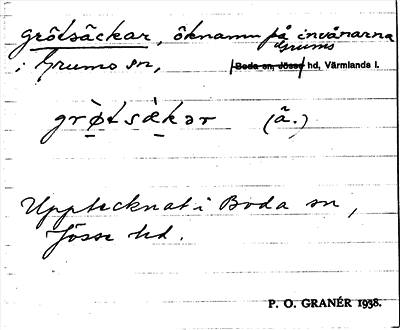 grötsäckar, öknamn på invånarna
i Grums sn, Grums
Boda sn, Jösse hd, Värmlands l.
grø̀tsækər (ä.)
Upptecknat i Boda sn,
Jösse hd.
P. O. GRANÉR 1938.